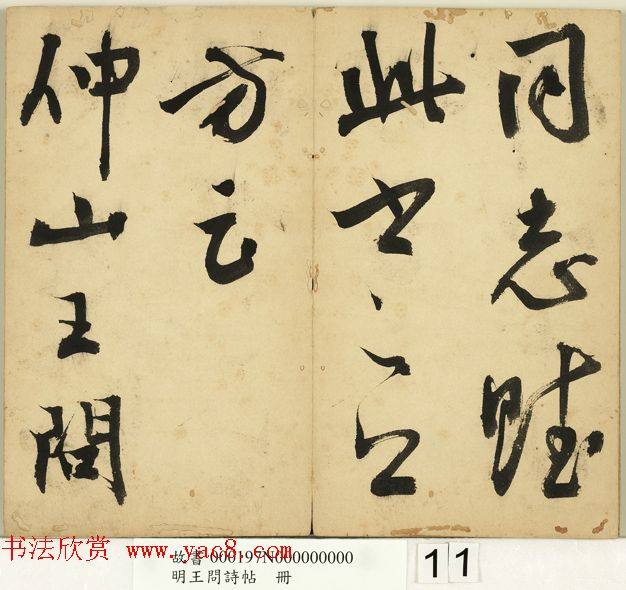 同志賦
此
方
仲山王問
书法欣赏 www.yac8.com
故書 000197N000000000
明王問詩帖 冊
11